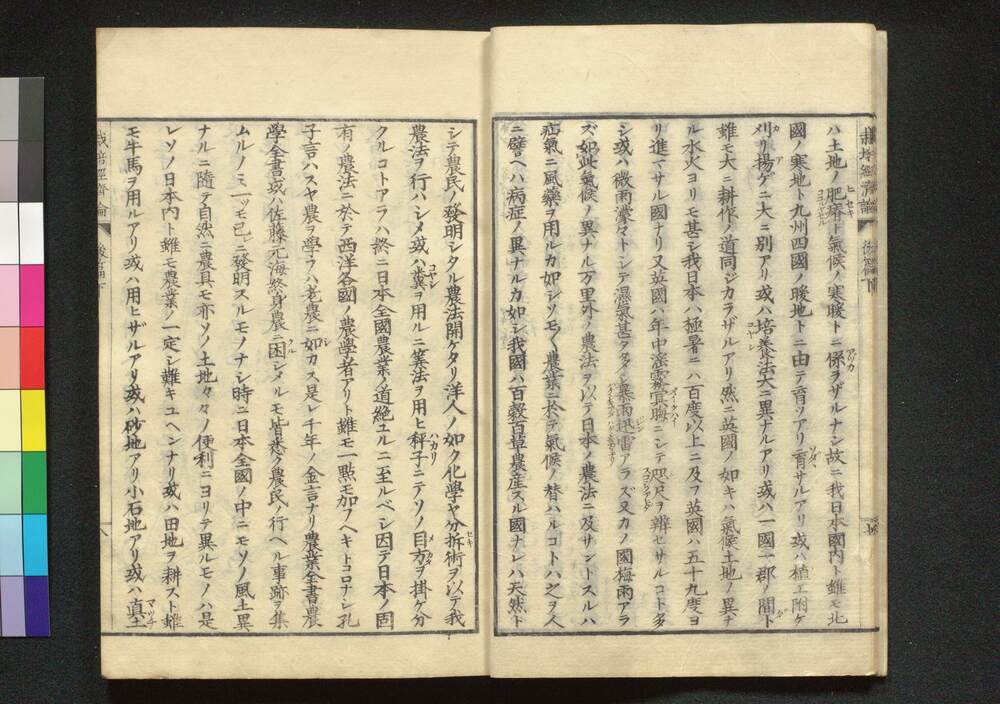 栽培經濟論
後篇下
ハ土地ノ肥瘠ト氣候ノ寒暖トニ係ラザルナシ故ニ我日本國内ト雖モ北
國ノ寒地ト九州四國ノ暖地トニ由テ育ツアリ育サルアリ或ハ植エ附ケ
刈リ揚ゲニ大ニ別アリ或ハ培養法大ニ異ナルアリ或ハ一國一郡ノ間ト
雖モ大ニ耕作ノ道同ジカラザルアリ然ニ英國ノ如キハ氣候土地ノ異ナ
ル水火ヨリモ甚シ我日本ハ極暑ニハ百度以上ニ及フ英國ハ五十九度ヨ
リ進マサル國ナリ又英國ハ年中滛霧冥晦ニシテ咫尺ヲ辨セサルコト多
シ或ハ微雨濛々トシテ濕氣甚タタシ暴雨迅雷アラズ又カノ國梅雨アラ
ズ如此氣候ノ異ナル万里外ノ農法ヲ以テ日本ノ農法ニ及サントスルハ
疝氣ニ風藥ヲ用ルカ如シソモ〱農業ニ於テ氣候ノ替ハルコトハ之ヲ人
ニ譬ヘハ病症ノ異ナルカ如シ我國ハ百穀百草農産スル國ナレハ天然ト
シテ農民ノ發明シタル農法開ケタリ洋人ノ如ク化學ヤ分拆術ヲ以テ我
農法ヲ行ハシメ或ハ糞ヲ用ルニ筭法ヲ用ヒ秤子ニテソノ目方ヲ掛ケ分
クルコトアラハ終ニ日本全國農業ノ道絶ユルニ至ルベシ因テ日本ノ固
有ノ農法ニ於テ西洋各國ノ農學者アリト雖モ一點モ加フヘキトコロナシ孔
子言ハスヤ農ヲ學ウハ老農ニ如カスト是レ千年ノ金言ナリ農業全書農
學全書或ハ佐藤元海終身農ニ困シメルモ皆悉ク農民ノ行ヘル事跡ヲ集
ムルノミ一ツモ已レニ發明スルモノナシ時ニ日本全國ノ中ニモソノ風土異
ナルニ隨テ自然ニ農具モ亦ソノ土地々々ノ便利ニヨリテ異ルモノハ是
レソノ日本内ト雖モ農業ノ一定シ難キユヘンナリ或ハ田地ヲ耕スト雖
モ牛馬ヲ用ルアリ或ハ用ヒザルアリ或ハ砂地アリ小石地アリ或ハ真土
栽培經濟論
後篇下
八